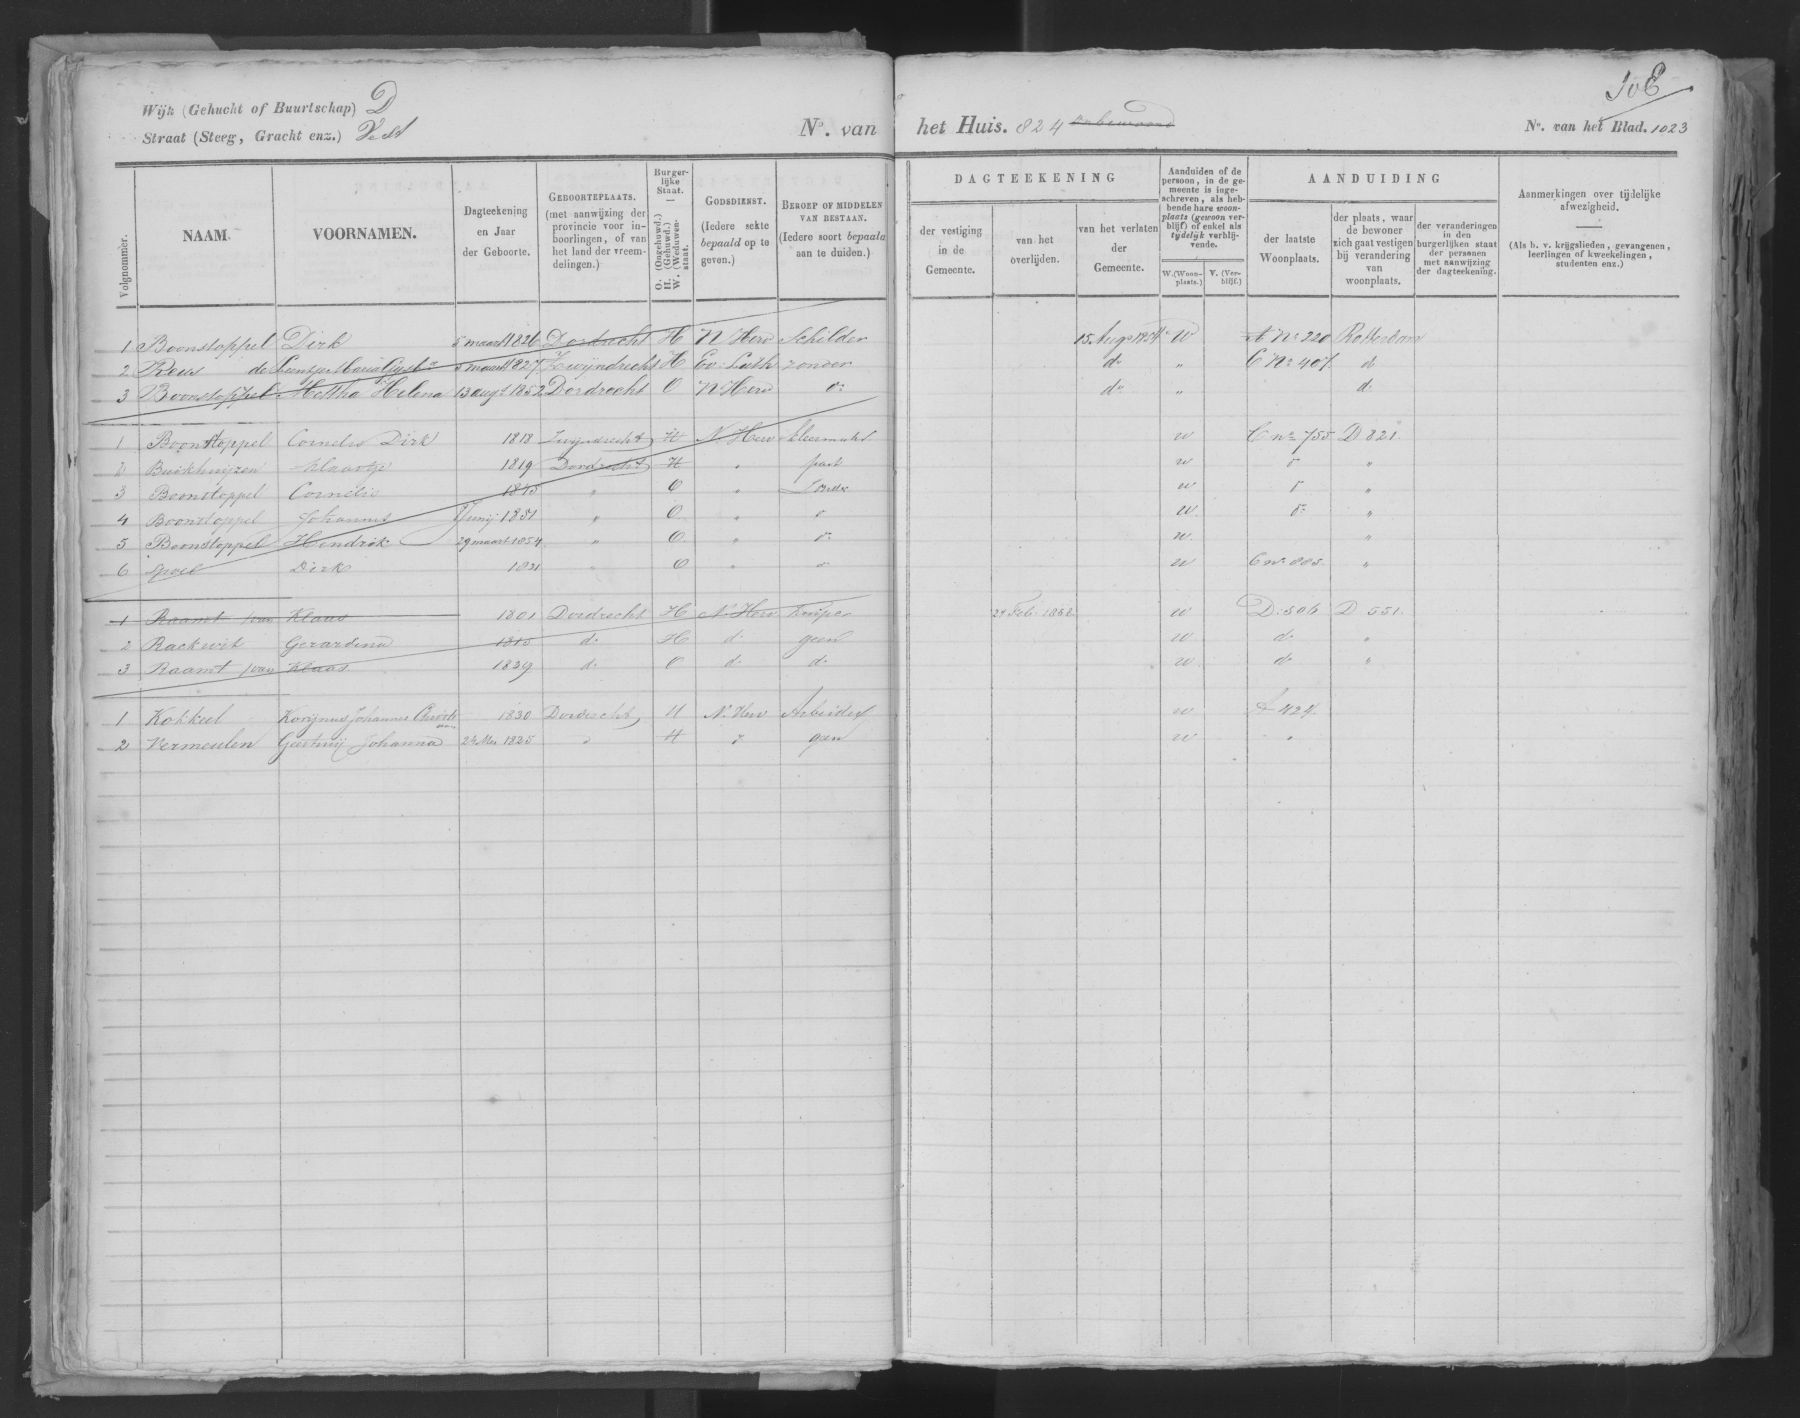 Wijk (Gehucht of Buurtschap) D
Straat (Steeg, Gracht enz.) Vest
No. van het Huis. 824
No. van het Blad. 1023
Volgnommer.
NAAM.
VOORNAMEN.
Dagteekening en Jaar der Geboorte.
GEBOORTEPLAATS. (met aanwijzing der provincie voor inboorlingen, of van het land der vreemdelingen.)
Burgerlijke Staat. O. (Ongehuwd.) H. (Gehuwd.) W. (Weduwenstaat.
GODSDIENST. (Iedere sekte bepaald op te geven.)
BEROEP OF MIDDELEN VAN BESTAAN. (Iedere soort bepaald aan te duiden.)
DAGTEEKENING
der vestiging in de Gemeente.
van het overlijden.
van het verlaten der Gemeente.
Aanduiden of de persoon, in de gemeente is ingeschreven, als hebbende hare woonplaats (gewoon verblijf) of enkel als tydelijk verblijvende.
W. (Woonplaats.) V. (Verblijf.)
AANDUIDING
der laatste Woonplaats.
der plaats, waar de bewoner zich gaat vestigen bij verandering van woonplaats.
der veranderingen in den burgerlijken staat der personen met aanwijzing der dagteekening.
Aanmerkingen over tijdelijke afwezigheid.
(Als b. v. krijgslieden, gevangenen, leerlingen of kweekelingen, studenten enz.)
1 Boonstoppel Dirk 5 maart 1826 Dordrecht H N Herv Schilder 15 Aug 1854 W A No 220 Rotterdam
2 Reus de Maria 5 maart 1827 Zwijndrecht H Ev. Luth zonder do " C No 407 d
3 Boonstoppel Metha Helena 13 augt 1852 Dordrecht O N Herv do do " d.
1 Boonstoppel Cornelis Dirk 1818 Zwijndrecht H N. Herv kleermaker w C no 755 D 821.
2 Buikhuijzen Klaartje 1819 Dordrecht H " w "
3 Boonstoppel Cornelis 1845 " O " w "
4 Boonstoppel Johannes Junij 1851 " O. " w. "
5 Boonstoppel Hendrik 29 maart 1854 " O. " w. "
6 Spoel Dirk 1821 " O " w C no 805. "
1 Raamt van Klaas 1801 Dordrecht H N. Herv Kuiper 24 Feb. 1858 w D. 506 D 551.
2 Rackwit Gerardina 1815 d. H d. geen w d. "
3 Raamt van Klaas 1839 d. O d. d. w. d. "
1 Kokkeel Korijnus Johannes 1830 Dordrecht H N. Herv Arbeider w A 424.
2 Vermeulen Geertruij Johanna 1825 " H " geen w "